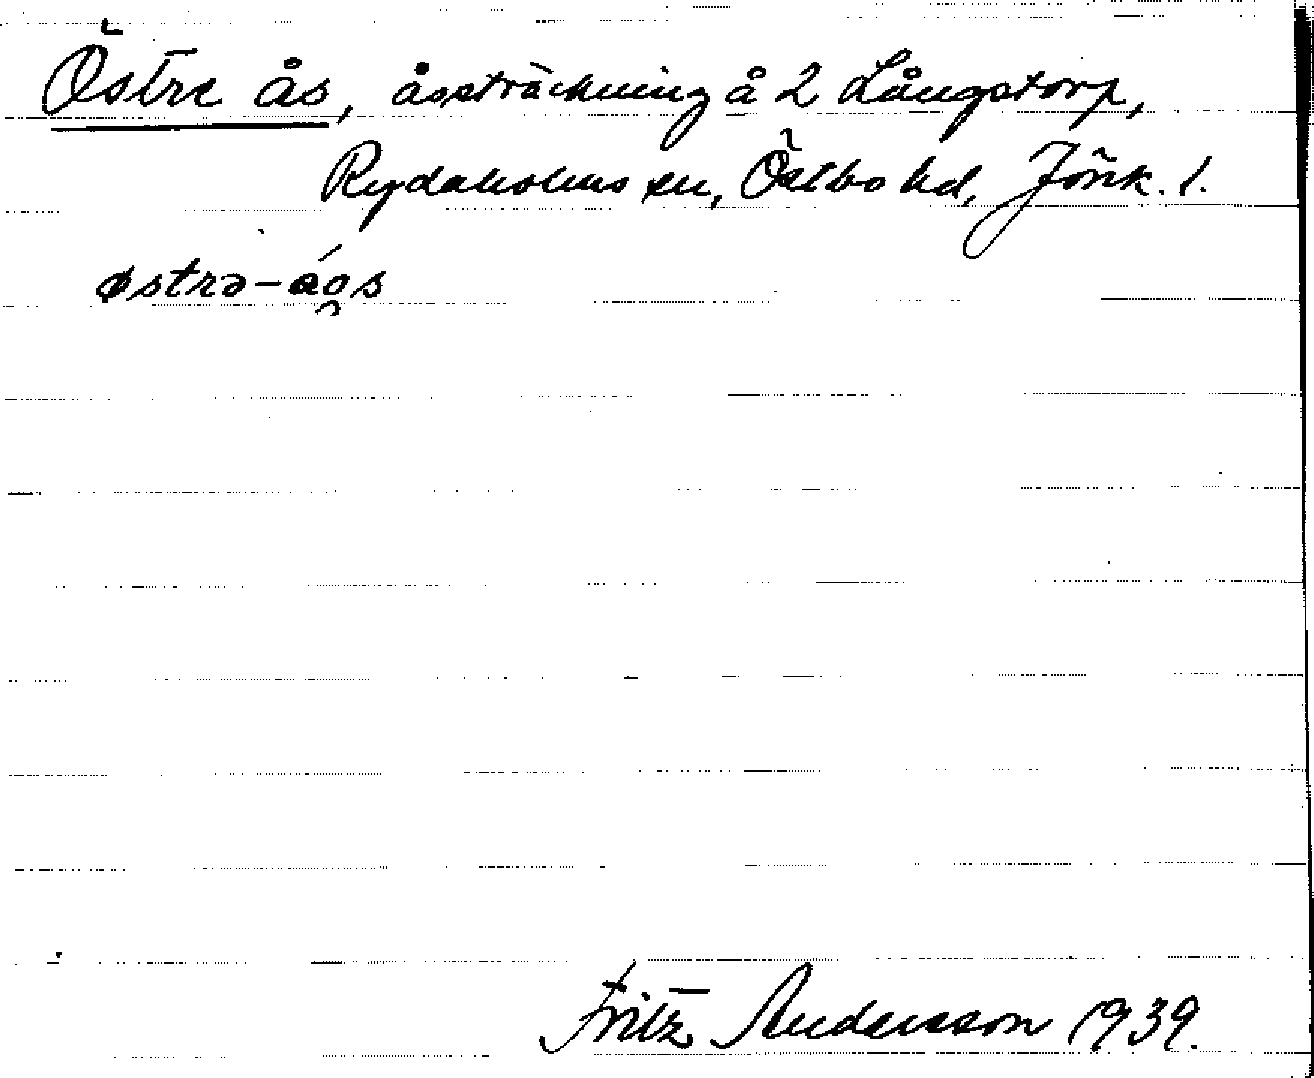 Östre ås, åssträckning å 2 Långstorp,
Rydaholms sn, Östbo hd, Jönk. l.
østrə-áo̯s
Fritz Andersson 1939.